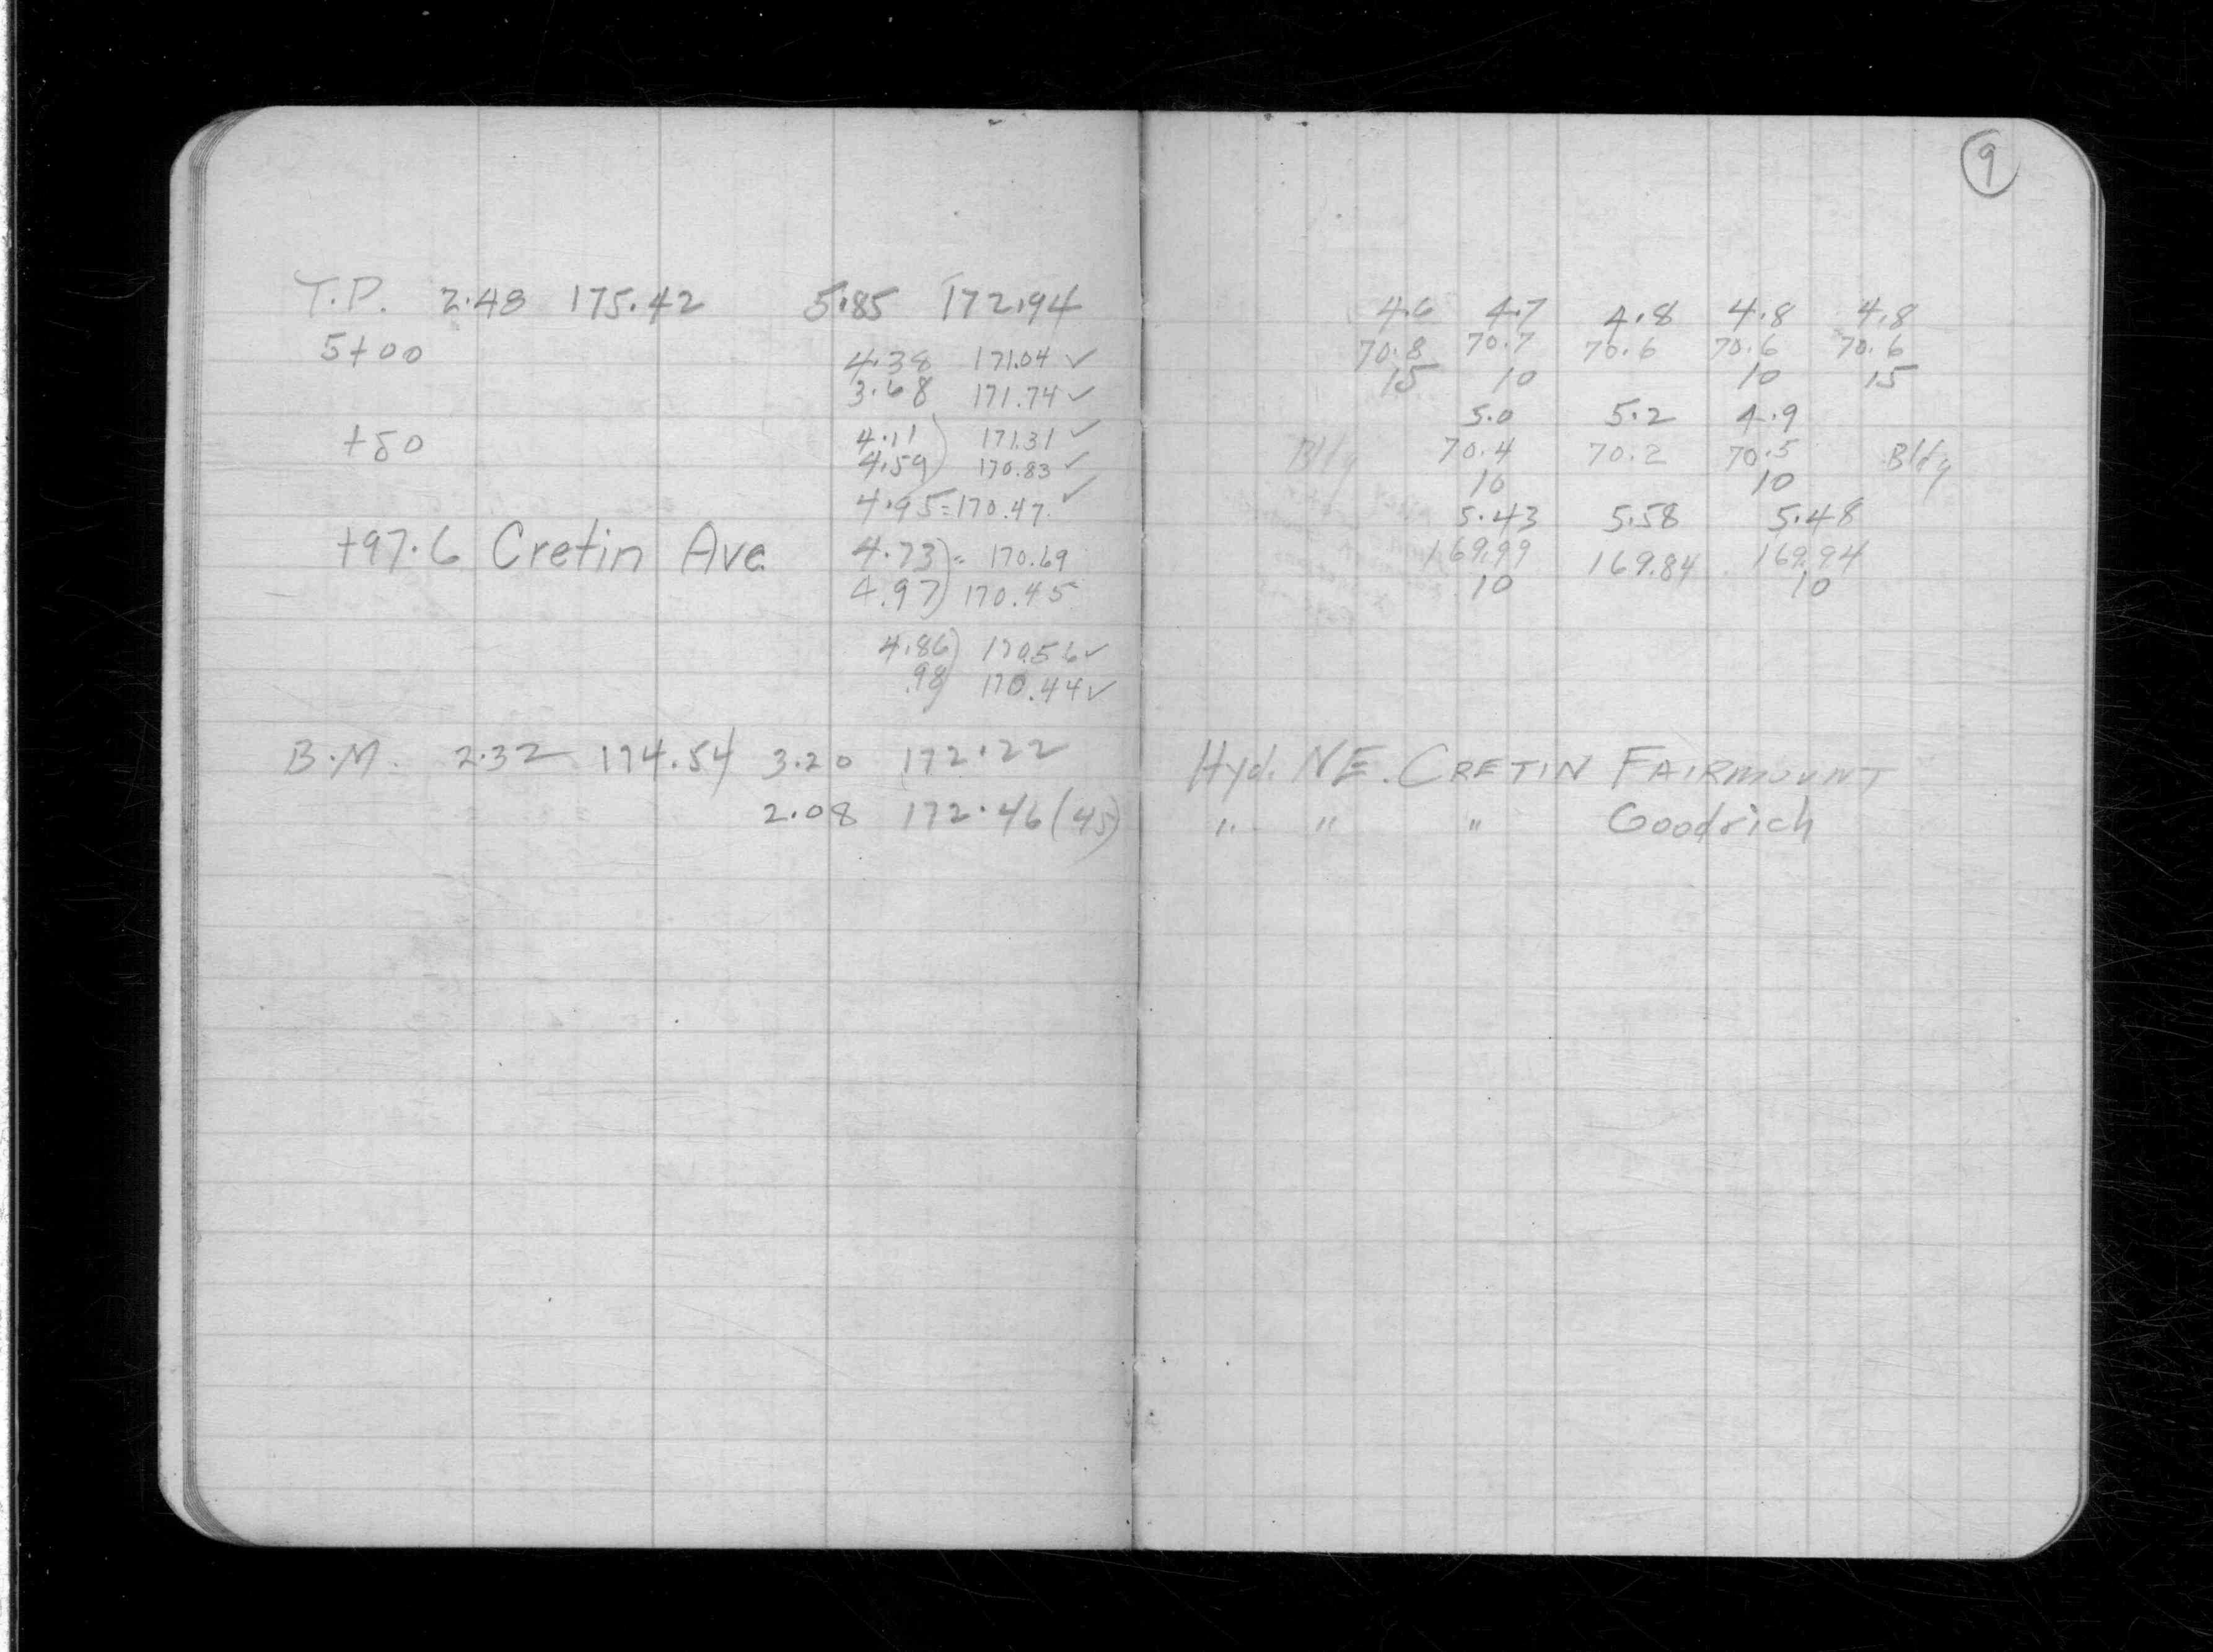 9
T.P. 2.48 175.42 5.85 172.94
5+00
4.38 171.04 ✓
3.68 171.74 ✓
+50
4.11) 171.31 ✓
4.59) 170.83 ✓
4.95=170.47 ✓
+97.6 Cretin Ave
4.73)= 170.69
4.97) 170.45
4.86) 170.56 ✓
.98) 170.44 ✓
B.M. 2.32 174.54 3.20 172.22
2.08 172.46 (45)
4.6 4.7 4.8 4.8 4.8
70.8 70.7 70.6 70.6 70.6
15 10 10 15
5.0 5.2 4.9
Bldg 70.4 70.2 70.5 Bldg
10 10
5.43 5.58 5.48
169.99 169.84 169.94
10 10
Hyd. NE. CRETIN FAIRMOUNT
" " " Goodrich